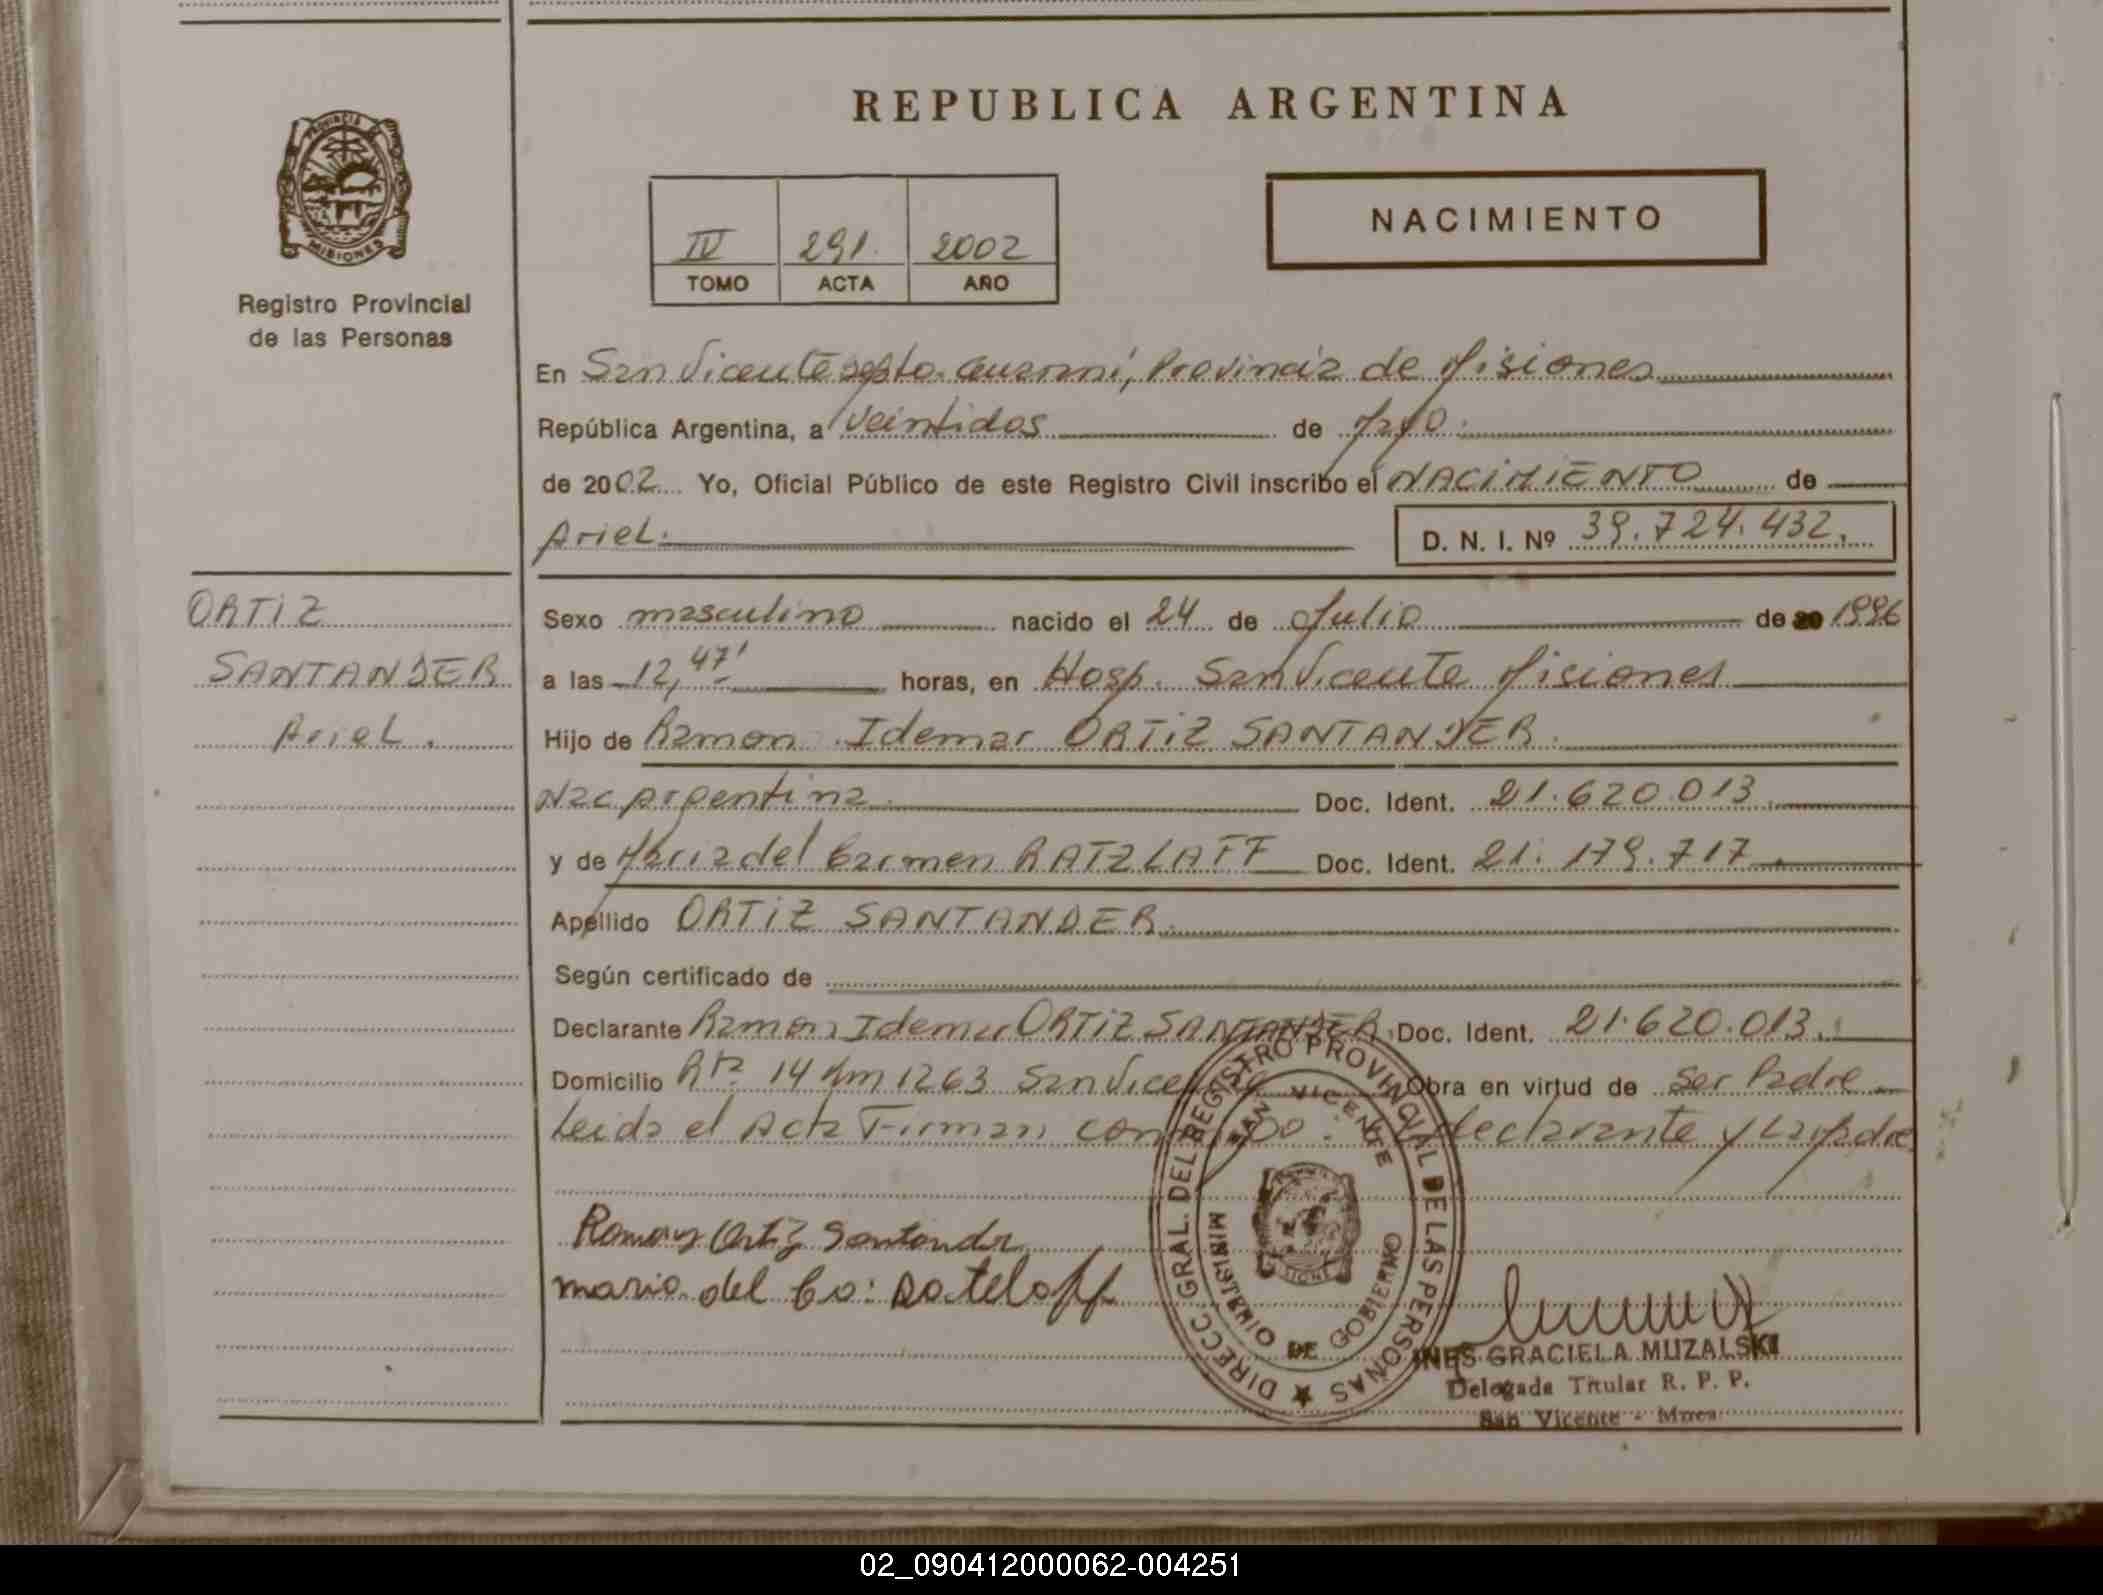 REPUBLICA ARGENTINA
PROVINCIA DE
MISIONES
Registro Provincial
de las Personas
IV 291. 2002
TOMO ACTA AÑO
NACIMIENTO
En San Vicente Depto. Guaraní, Provincia de Misiones
República Argentina, a veintidos de Mayo.
de 2002 Yo, Oficial Público de este Registro Civil inscribo el NACIMIENTO de
Ariel.
D. N. I. Nº 39.724.432.
ORTIZ
SANTANDER
Ariel.
Sexo masculino nacido el 24 de Julio de 20 1996
a las 12,47' horas, en Hosp. San Vicente Misiones
Hijo de Ramon Idemar ORTIZ SANTANDER.
Nac Argentina. Doc. Ident. 21.620.013.
y de Maria del Carmen RATZLAFF Doc. Ident. 21.179.717.
Apellido ORTIZ SANTANDER.
Según certificado de
Declarante Ramon Idemar ORTIZ SANTANDER, Doc. Ident. 21.620.013.
Domicilio Rta 14 Km 1263 San Vicente Obra en virtud de Ser Padre
Leida el Acta Firman declarante y La Madre
Ramon Ortiz Santander
maria del Ca: Rateloff
DIRECC. GRAL. DEL REGISTRO PROVINCIAL DE LAS PERSONAS
SAN VICENTE
MINISTERIO DE GOBIERNO
INES GRACIELA MUZALSKI
Delegada Titular R. P. P.
San Vicente - Mnes
02_090412000062-004251